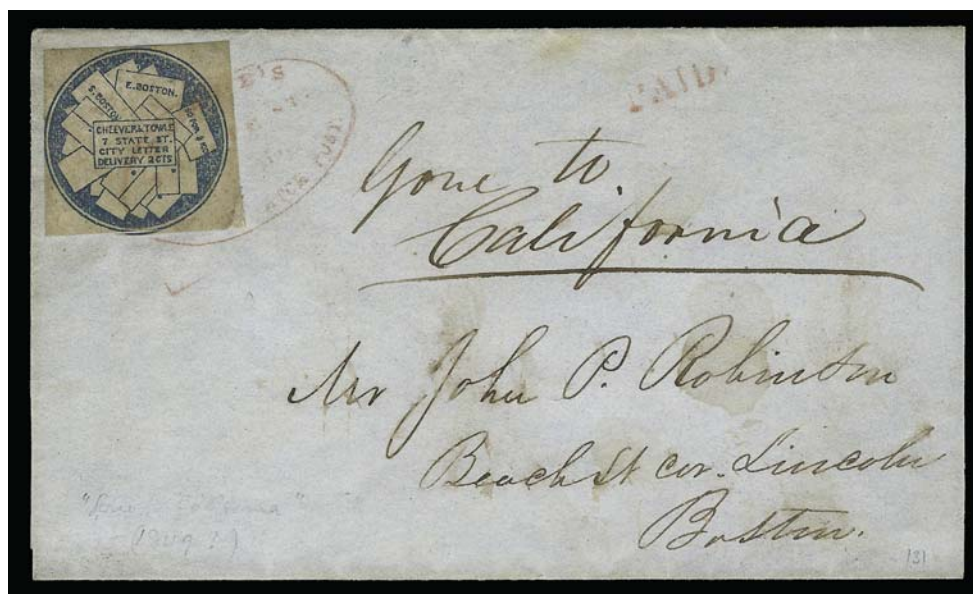 E. BOSTON.
S. BOSTON
CHEEVER & TOWLE
7 STATE ST.
CITY LETTER
DELIVERY 2 CTS
E'S
PAID
Gone to
California
Mr John P. Robinson
Beach St cor. Lincoln
Boston.
131